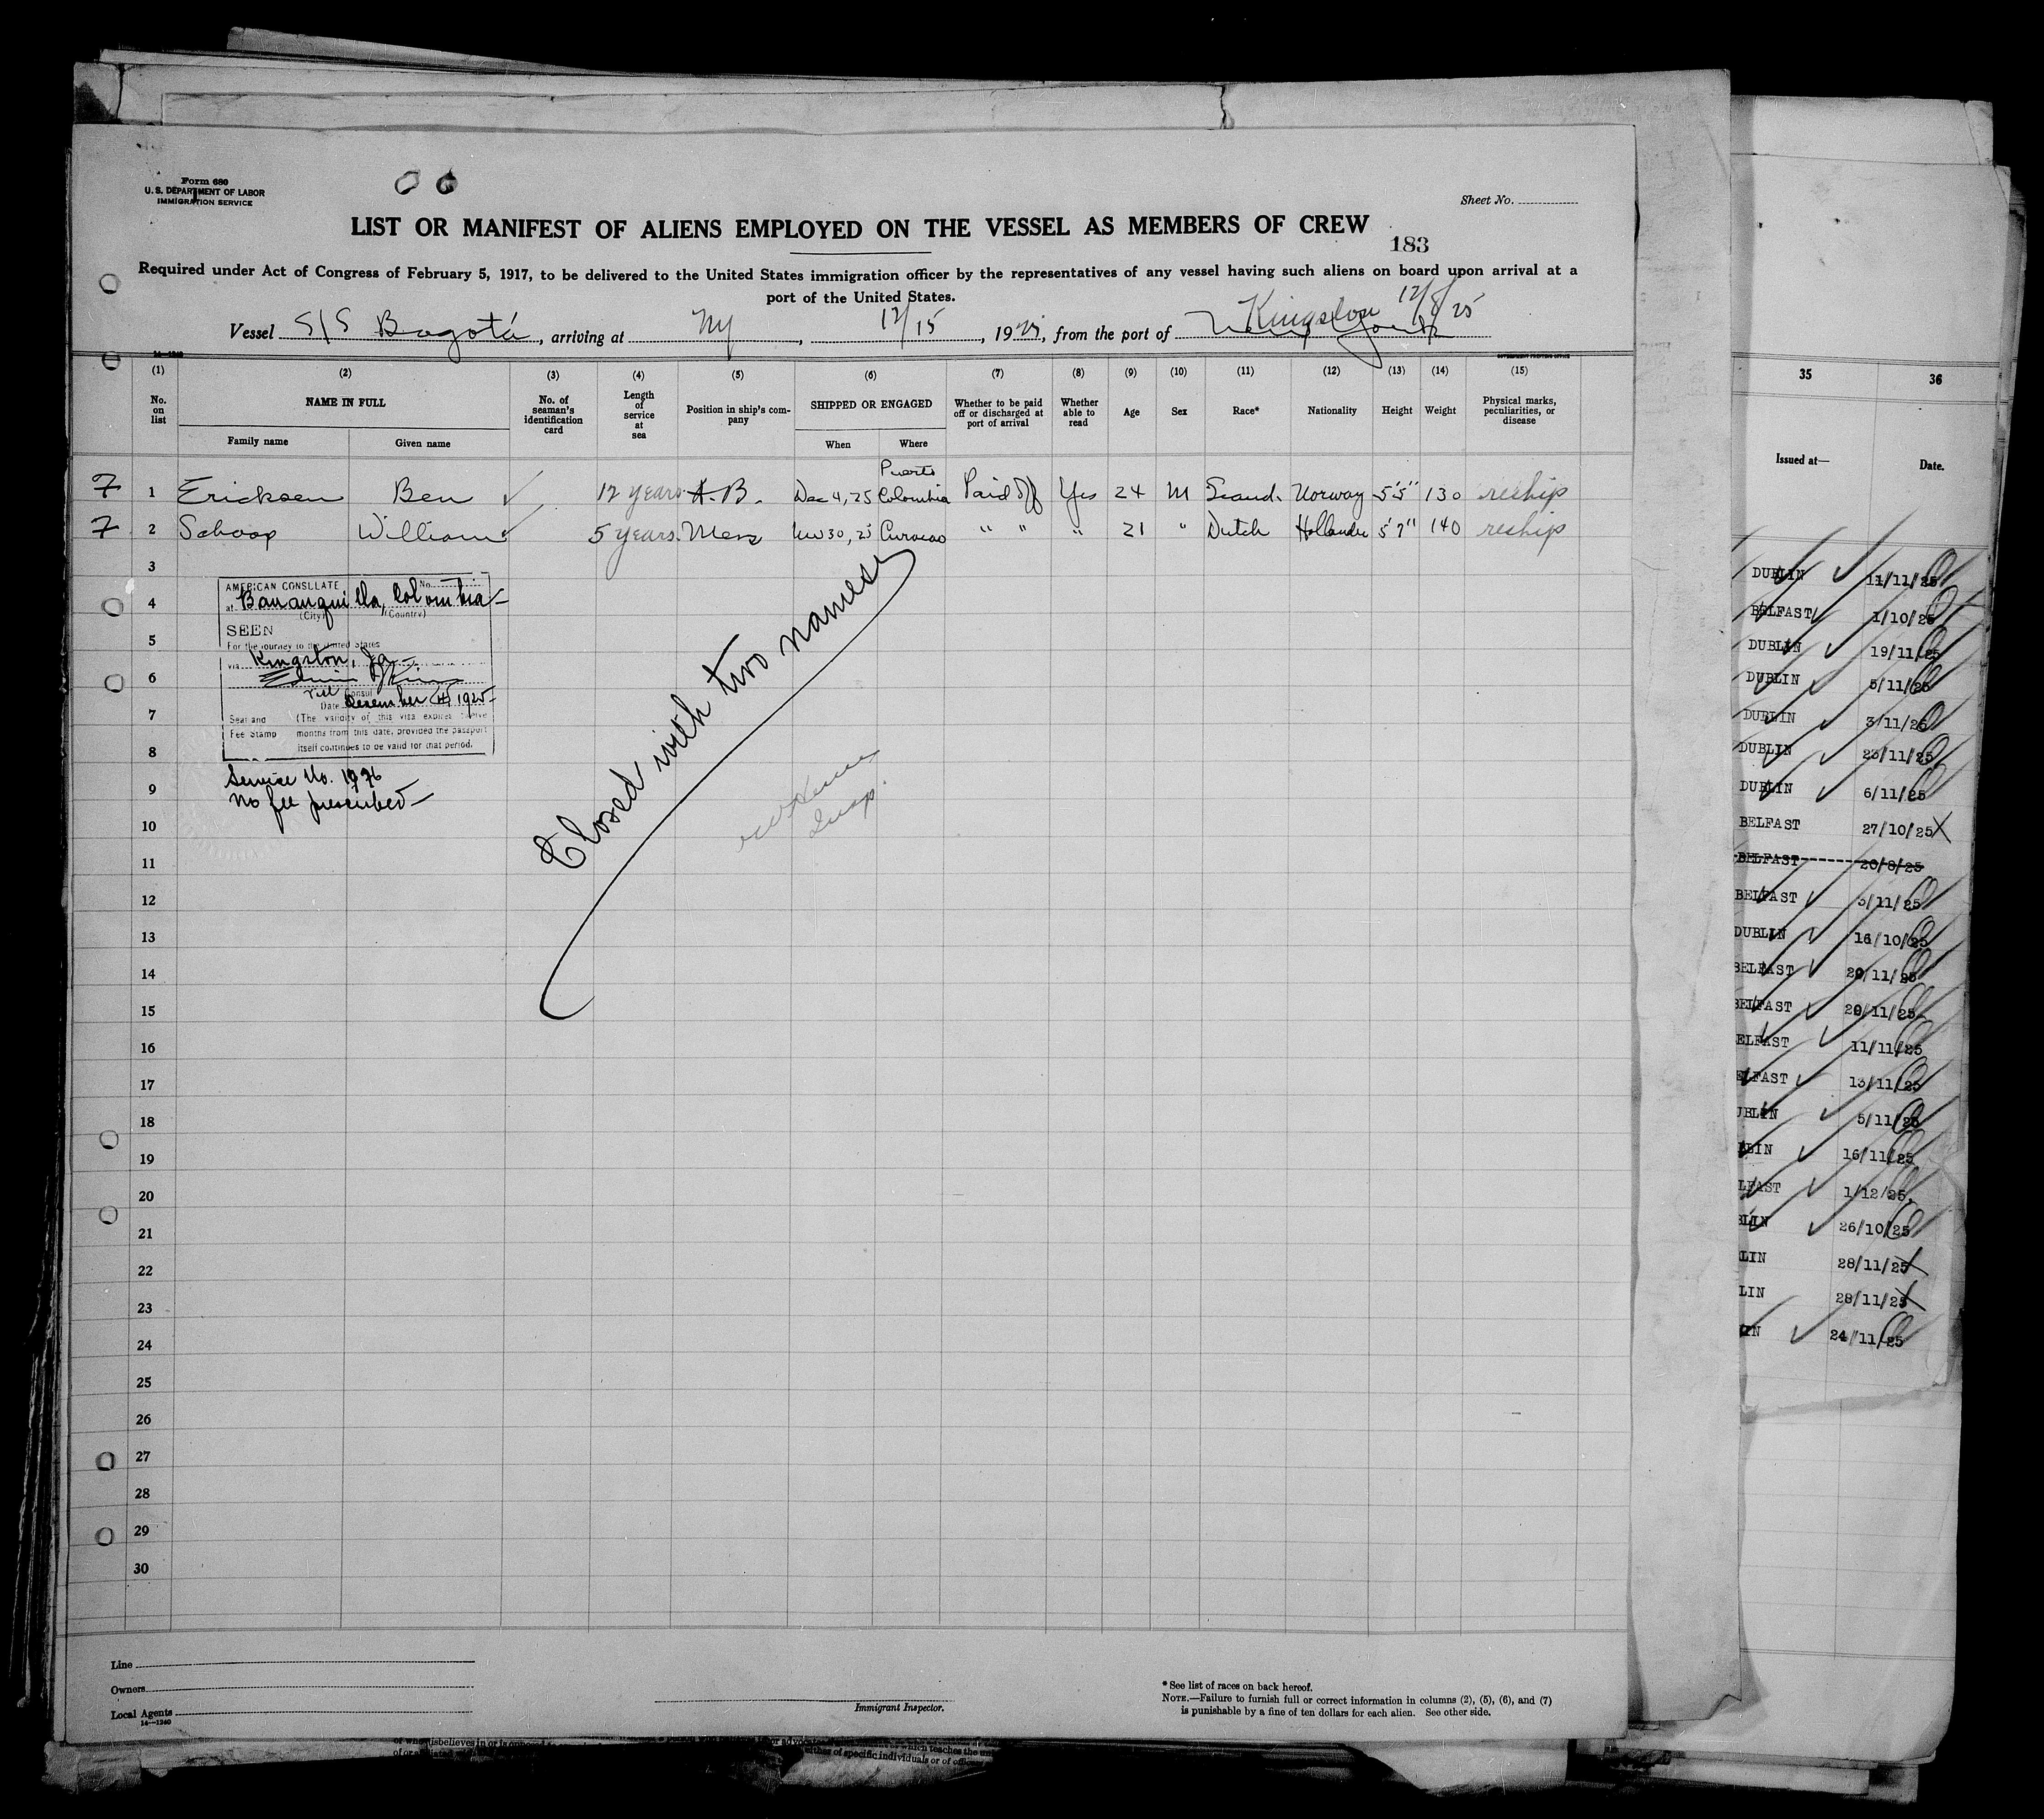 Form 680
U. S. DEPARTMENT OF LABOR
IMMIGRATION SERVICE
Sheet No.
LIST OR MANIFEST OF ALIENS EMPLOYED ON THE VESSEL AS MEMBERS OF CREW
183
Required under Act of Congress of February 5, 1917, to be delivered to the United States immigration officer by the representatives of any vessel having such aliens on board upon arrival at a
port of the United States.
Vessel S/S Bogotá, arriving at NY, 12/15, 1925, from the port of Kingston 12/8/25
14-1240
GOVERNMENT PRINTING OFFICE
(1) (2) (3) (4) (5) (6) (7) (8) (9) (10) (11) (12) (13) (14) (15)
No. on list
NAME IN FULL
Family name
Given name
No. of seaman's identification card
Length of service at sea
Position in ship's company
SHIPPED OR ENGAGED
When
Where
Whether to be paid off or discharged at port of arrival
Whether able to read
Age
Sex
Race*
Nationality
Height
Weight
Physical marks, peculiarities, or disease
7 1 Ericksen Ben ✓ 12 years A.B. Dec 4, 25 Puerto Colombia Paid Off Yes 24 M Scand. Norway 5'5" 130 reship
7 2 Schoop William ✓ 5 years. Mess Nov 30, 25 Curacao " " " 21 " Dutch Hollander 5'7" 140 reship
3
4
5
6
7
8
9
10
11
12
13
14
15
16
17
18
19
20
21
22
23
24
25
26
27
28
29
30
AMERICAN CONSULATE No.
at Barranquilla, Colombia
(City) (Country)
SEEN
For the journey to the United States
via Kingston, Ja.
Vice Consul
Date December 4, 1925
Seal and Fee Stamp
(The validity of this visa expires twelve
months from this date, provided the passport
itself continues to be valid for that period.
Service No. 1976
No fee prescribed
Closed with two names
Insp.
Line
Owners
Local Agents
14-1240
Immigrant Inspector.
* See list of races on back hereof.
NOTE.—Failure to furnish full or correct information in columns (2), (5), (6), and (7)
is punishable by a fine of ten dollars for each alien. See other side.
35 36
Issued at— Date.
DUBLIN 11/11/25
BELFAST 1/10/25
DUBLIN 19/11/25
DUBLIN 5/11/25
DUBLIN 3/11/25
DUBLIN 23/11/25
DUBLIN 6/11/25
BELFAST 27/10/25
BELFAST 20/8/25
BELFAST 3/11/25
DUBLIN 16/10/25
BELFAST 20/11/25
BELFAST 20/11/25
ELFAST 11/11/25
ELFAST 13/11/25
UBLIN 5/11/25
BLIN 16/11/25
LFAST 1/12/25
BLIN 26/10/25
LIN 28/11/25
LIN 28/11/25
IN 24/11/25